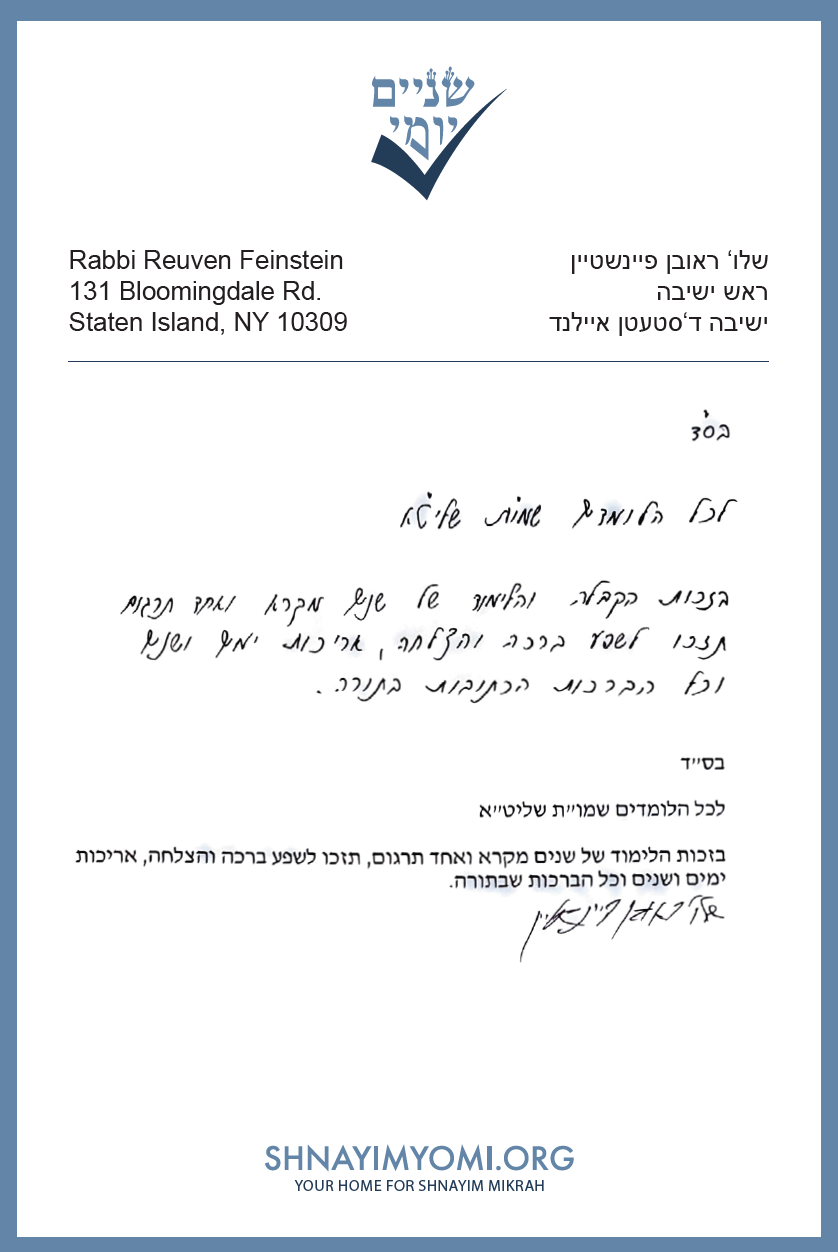 שניים
יומי
Rabbi Reuven Feinstein
131 Bloomingdale Rd.
Staten Island, NY 10309
שלו' ראובן פיינשטיין
ראש ישיבה
ישיבה ד'סטעטן איילנד
בס"ד
לכל הלומדים שמו"ת שליט"א
בזכות הקבלה והלימוד של שנים מקרא ואחד תרגום
תזכו לשפע ברכה והצלחה, אריכות ימים ושנים
וכל הברכות הכתובות בתורה.
בס"ד
לכל הלומדים שמו"ת שליט"א
בזכות הלימוד של שנים מקרא ואחד תרגום, תזכו לשפע ברכה והצלחה, אריכות
ימים ושנים וכל הברכות שבתורה.
שלו' ראובן פיינשטיין
SHNAYIMYOMI.ORG
YOUR HOME FOR SHNAYIM MIKRAH